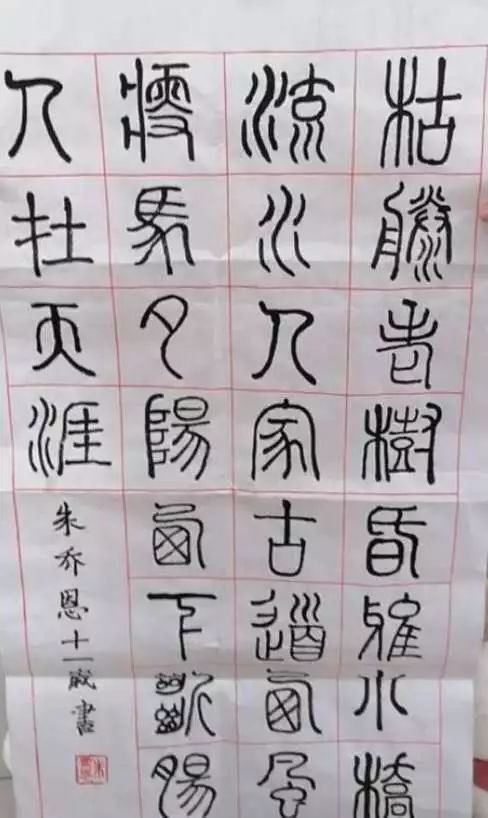 枯滕老樹昏雅小橋
流水人家古道西風
瘦馬夕陽西下斷腸
人在天涯
朱乔恩十一歲書